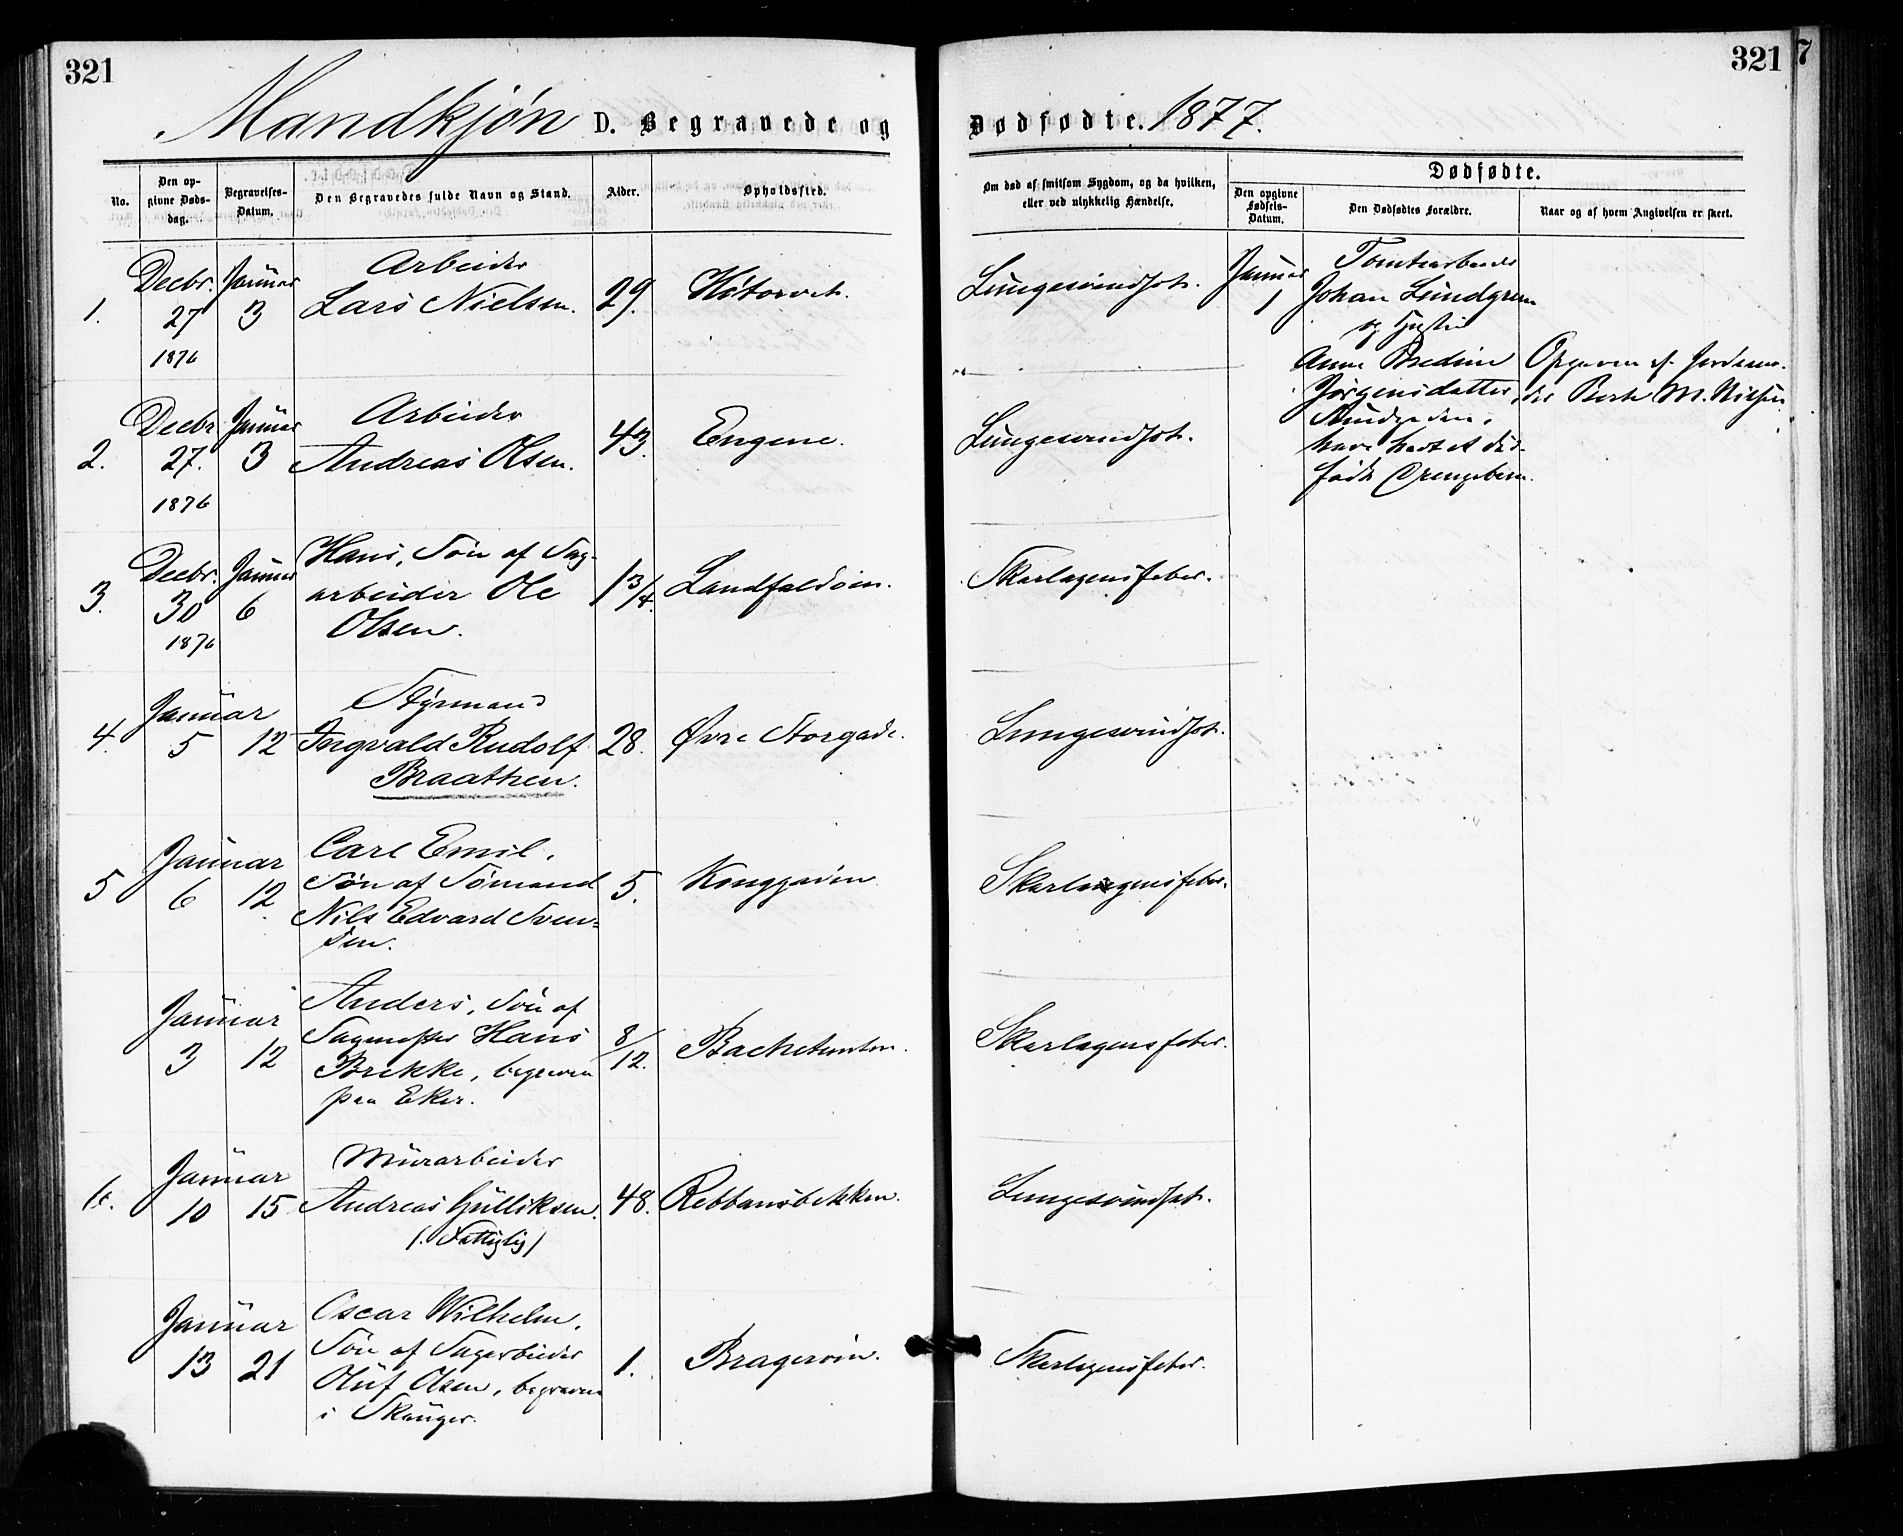 321
321
7
Mandkjøn D. Begravede og Dødfødte. 1877.
No.
Den op-
givne Døds-
dag.
Begravelses-
Datum.
Den Begravedes fulde Navn og Stand.
Alder.
Opholdssted.
Om død af smitsom Sygdom, og da hvilken,
eller ved ulykkelig Hændelse.
Dødfødte.
Den opgivne
Fødsels-
Datum.
Den Dødfødtes Forældre.
Naar og af hvem Angivelsen er skeet.
1.
Decbr.
27
1876
Januar
3
Arbeider
Lars Nielsen.
29.
Høtorvet.
Lungesvindsot.
Januar
1
Tomtearbeider
Johan Lundgren
og Hustru
Anne
Jørgensdatter,
have havt et død-
født Drengebarn.
Opgiven af Jordemo-
der M. Nielsen
2.
Decbr
27.
1876
Januar
3
Arbeider
Andreas Olsen.
43.
Engene.
Lungesvindsot.
3.
Decbr.
30
1876
Januar
6
Hans, Søn af Sag-
arbeider Ole
Olsen.
1 3/4.
Landfaldøen.
Skarlagensfeber.
4.
Januar
5 12
Styrmand
Ingvald Rudolf
Braathen.
28.
Øvre Storgade.
Lungesvindsot.
5
Januar
6 12
Carl Emil,
Søn af Sømand
Nils Edvard Sven-
sen.
5.
Konggaden
Skarlagensfeber.
Januar
3 12
Anders, Søn af
Sagmester Hans
Brekke, begraven
paa Eker.
8/12.
Bachetomten.
Skarlagensfeber.
6.
Januar
10 15
Murarbeider
Andreas Gulliksen.
(: Fattiglig)
48.
Rebbansbekken.
Lungesvindsot.
Januar
13 21
Oscar Wilhelm,
Søn af Sagarbeider
Oluf Olsen, begraven
i Skouger.
1.
Bragerøen.
Skarlagensfeber.